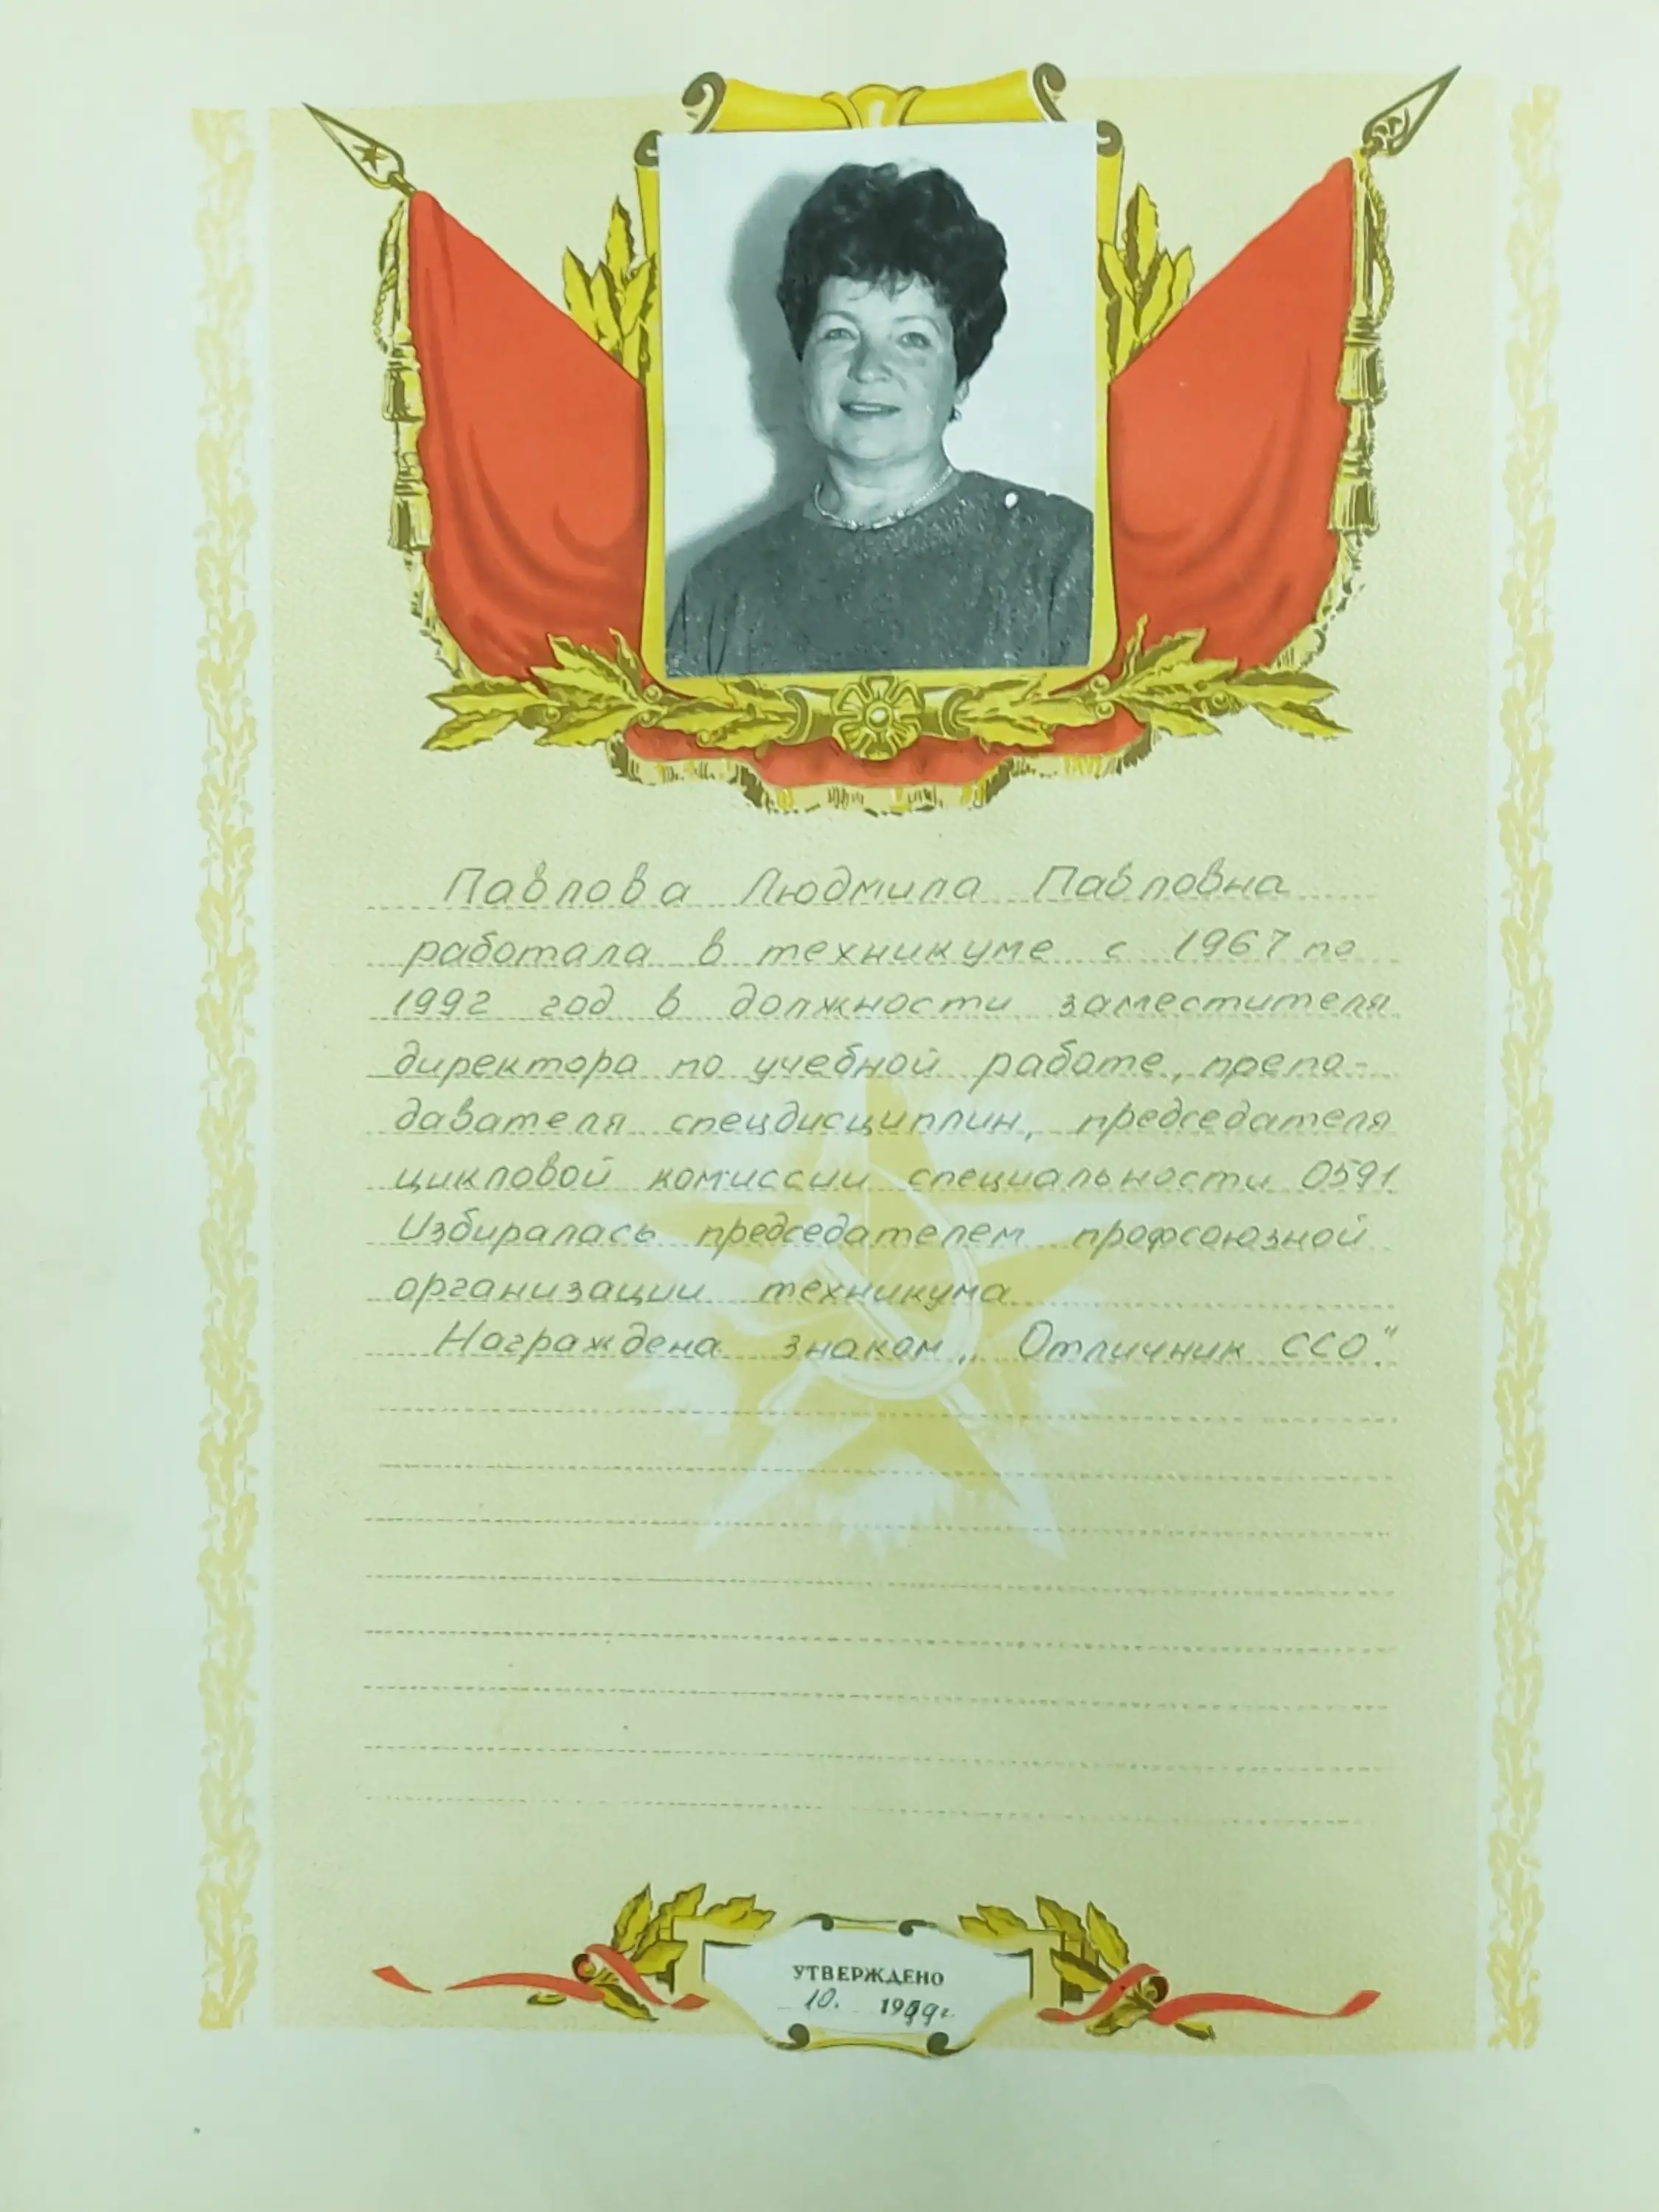 Павлова Людмила Павловна
работала в техникуме с 1967 по
1992 год в должности заместителя
директора по учебной работе, препо-
давателя спецдисциплин, председателя
цикловой комиссии специальности 0591
Избиралась председателем профсоюзной
организации техникума
Награждена знаком „Отличник ССО."
УТВЕРЖДЕНО
10. 1999г.